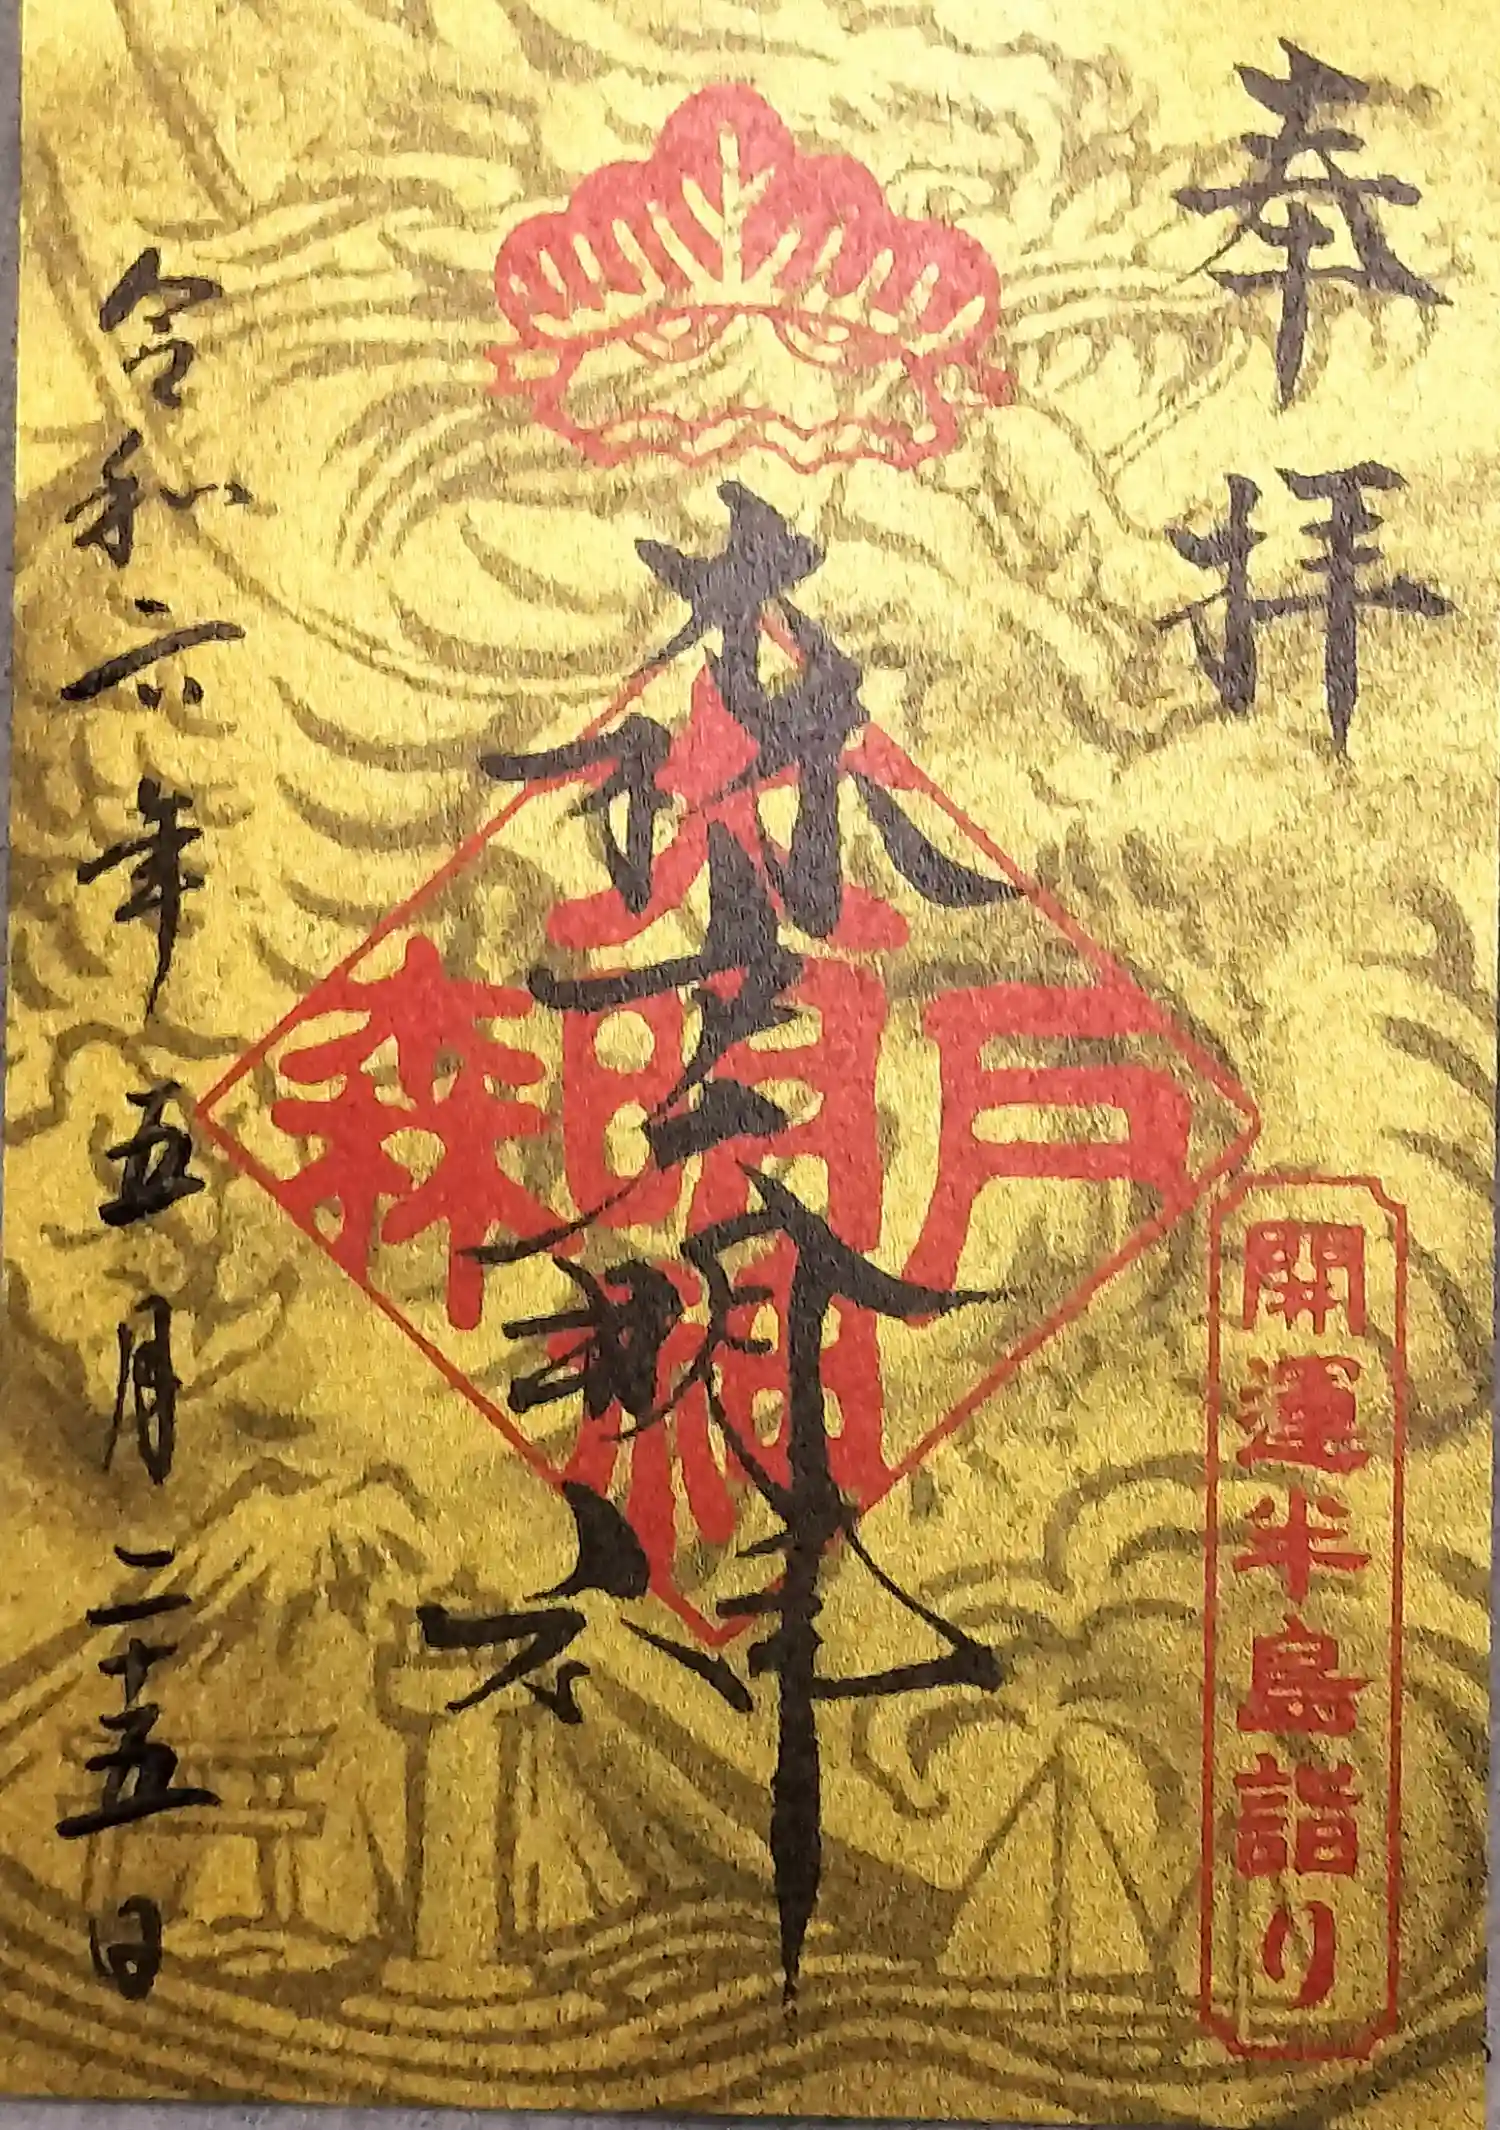 奉拝
開運半島詣り
森戸大明神
森戸大明神
令和六年五月二十五日